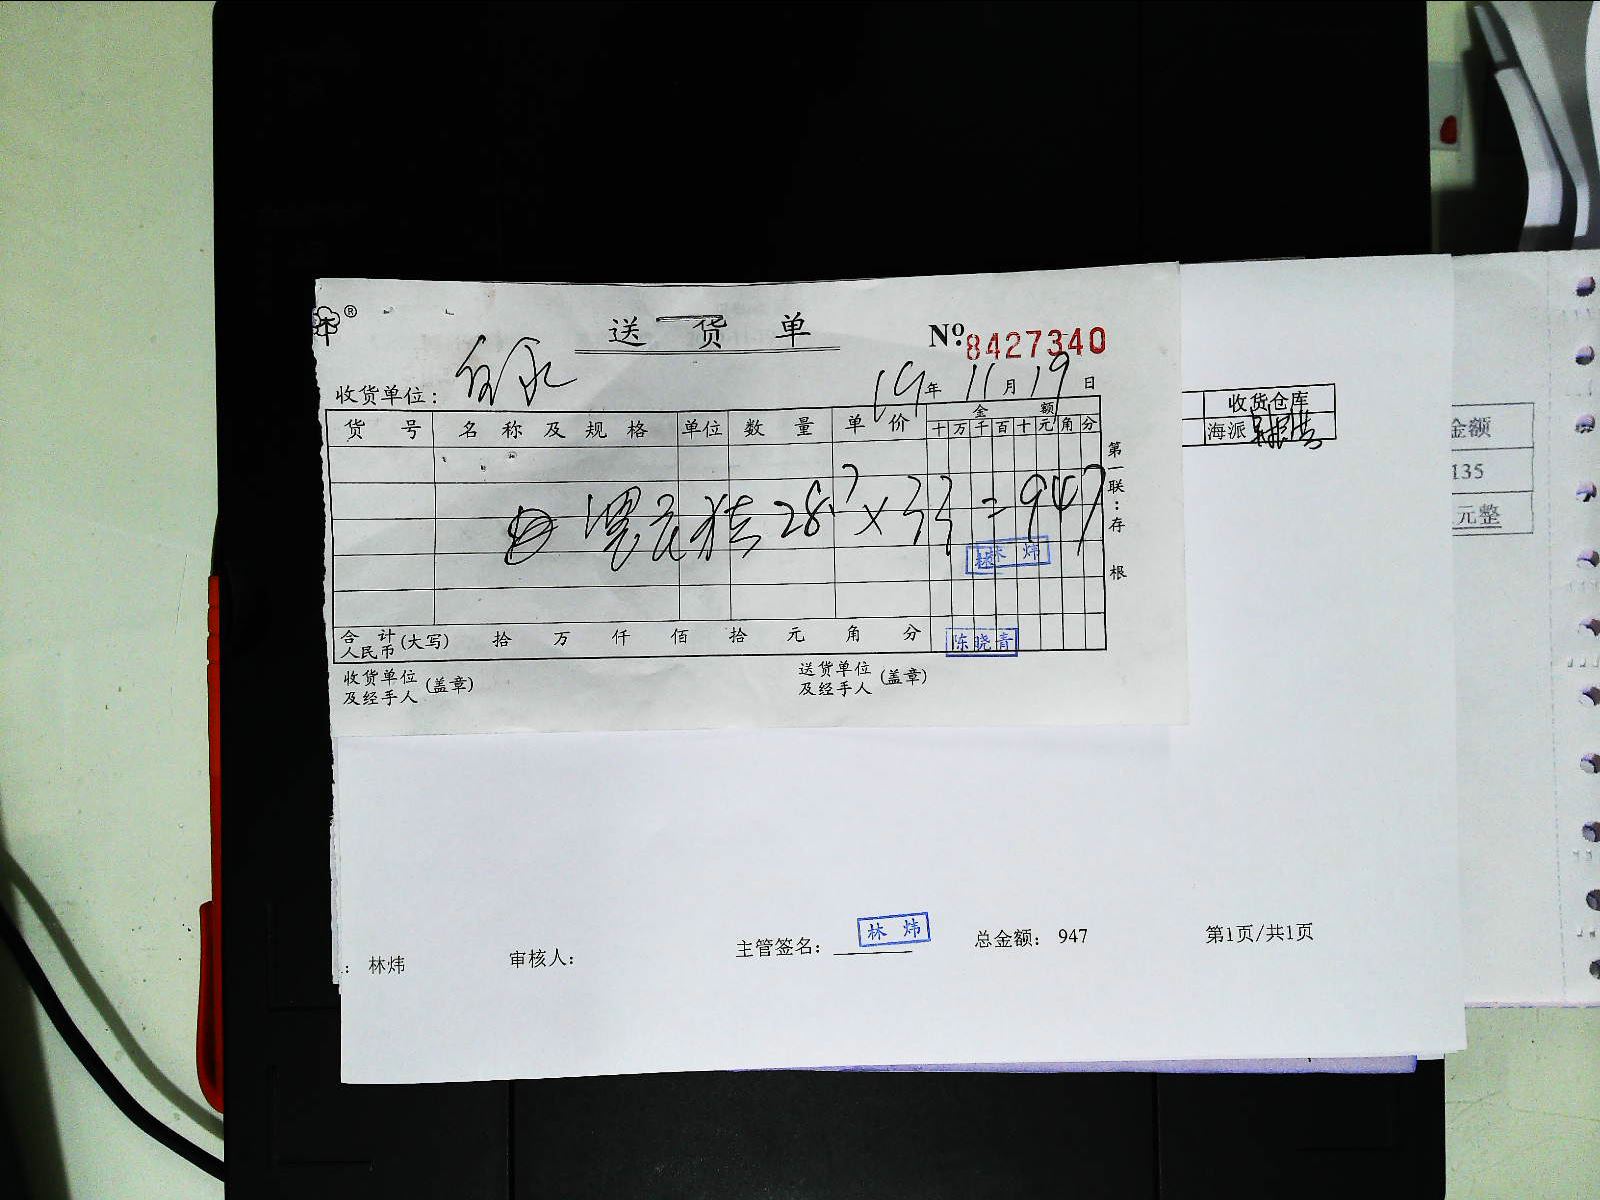 ®
送货单
№ 8427340
收货单位：
19年 11月 19日
货号 名称及规格 单位 数量 单价 金额
十万千百十元角分
28.7×33=947
林炜
合计人民币(大写) 拾 万 仟 佰 拾 元 角 分
陈晓青
收货单位及经手人(盖章)
送货单位及经手人(盖章)
第一联：存根
收货仓库
海派
金额
135
元整
：林炜
审核人：
主管签名：
林炜
总金额：947
第1页/共1页